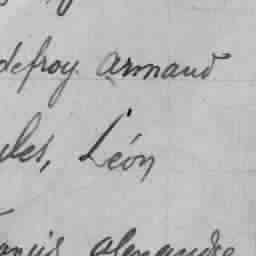 defroy Armand
ules, Léon
ancis alexandre